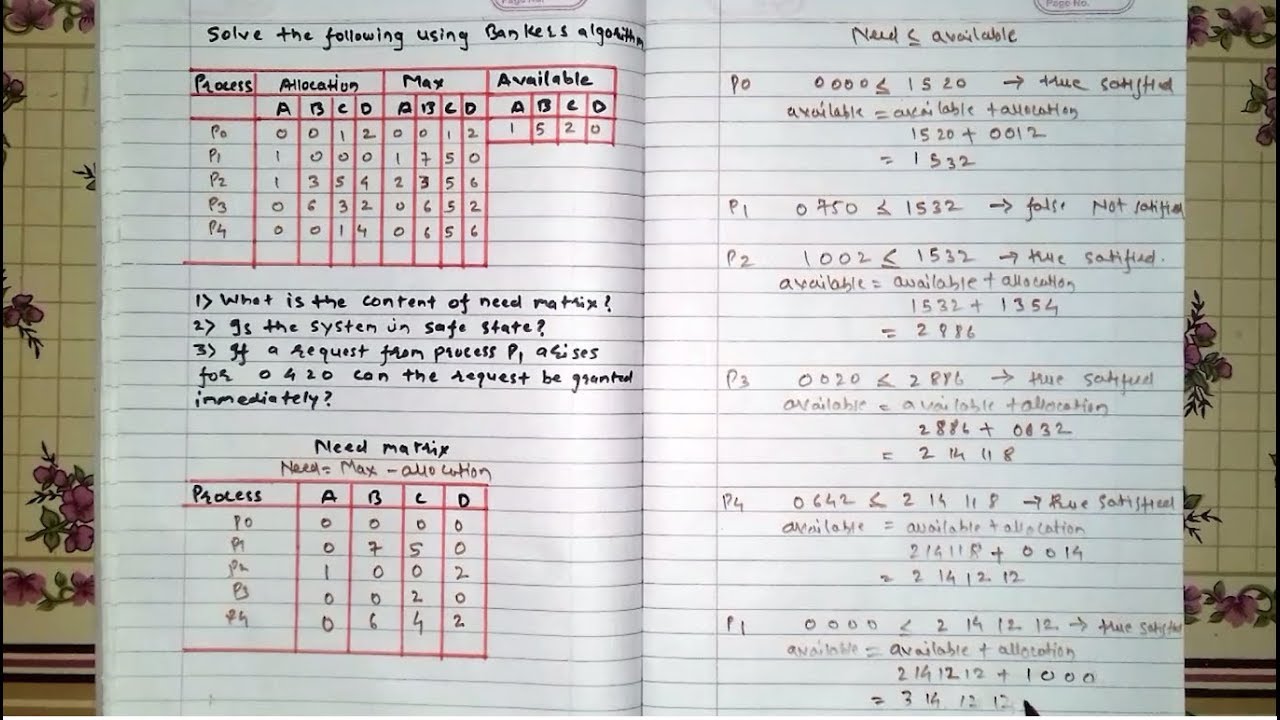 Page No.
Solve the following using Bankers algorithm
Process Allocation Max Available
A B C D A B C D A B C D
P0 0 0 1 2 0 0 1 2 1 5 2 0
P1 1 0 0 0 1 7 5 0
P2 1 3 5 4 2 3 5 6
P3 0 6 3 2 0 6 5 2
P4 0 0 1 4 0 6 5 6
1) What is the content of need matrix?
2) Is the system in safe state?
3) If a request from process P1 arises
for 0 4 2 0 can the request be granted
immediately?
Need matrix
Need = Max - allocation
Process A B C D
P0 0 0 0 0
P1 0 7 5 0
P2 1 0 0 2
P3 0 0 2 0
P4 0 6 4 2
Page No.
Need ≤ available
P0 0000 ≤ 1520 → true satisfied
available = available + allocation
1520 + 0012
= 1532
P1 0750 ≤ 1532 → false Not satified
P2 1002 ≤ 1532 → true satified.
available = available + allocation
1532 + 1354
= 2886
P3 0020 ≤ 2886 → true satified
available = available + allocation
2886 + 0632
= 2 14 11 8
P4 0642 ≤ 2 14 11 8 → true satisfied
available = available + allocation
2 14 11 8 + 0014
= 2 14 12 12
P1 0000 ≤ 2 14 12 12 → true satisfie
available = available + allocation
2 14 12 12 + 1000
= 3 14 12 12